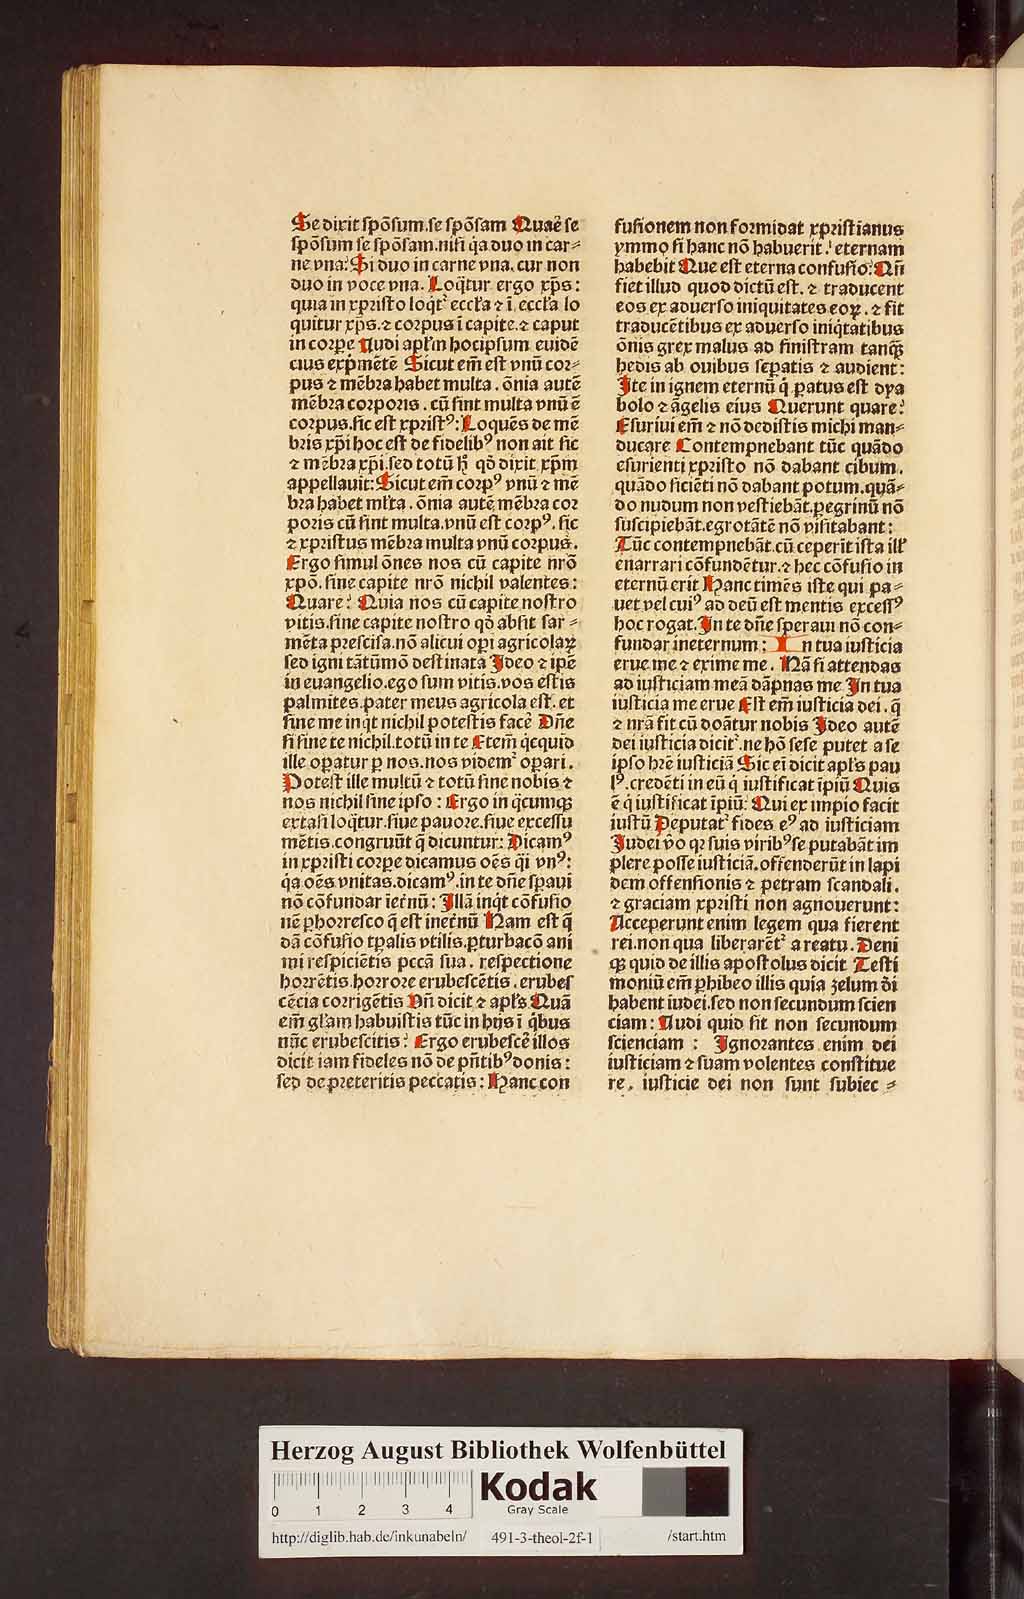 Se dixit spōsum.se spōsam Quaē se
spōsum se spōsam.nisi q̇a duo in car⸗
ne vna: Si duo in carne vna.cur non
duo in voce vna. Loq̄tur ergo xp̄s:
quia in xpristo loq̇t᷑ eccl̄a ⁊ ī eccl̄a lo
quitur xp̄s.⁊ corpus ī capite.⁊ caput
in corpe Audi apl̄m hocipsum euidē
cius exp̄mētē Sicut em̄ est vnū cor⸗
pus ⁊ mēbra habet multa . ōnia autē
mēbra corporis . cū sint multa vnū ē
corpus.sic est xpristꝰ: Loquēs de mē
bris xp̄i hoc est de fidelibꝰ non ait sic
⁊ mēbra xp̄i.sed totū h̄ qd̄ dixit xp̄m
appellauit: Sicut em̄ corpꝰ vnū ⁊ mē
bra habet ml̄ta . ōnia autē mēbra cor
poris cū sint multa.vnū est corpꝰ. sic
⁊ xpristus mēbra multa vnū corpus.
Ergo simul ōnes nos cū capite nr̄o
xpō.sine capite nr̄o nichil valentes:
Quare: Quia nos cū capite nostro
vitis.sine capite nostro qd̄ absit sar⸗
mēta prescisa.nō alicui opi agricolaꝝ
sed igni tātūmō destinata Ideo ⁊ ipē
in euangelio.ego sum vitis.vos estis
palmites.pater meus agricola est.et
sine me inq̇t nichil potestis facē Dn̄e
si sine te nichil.totū in te Etem̄ q̇cquid
ille oꝑatur ꝑ nos.nos videm᷑ oꝑari.
Potest ille multū ⁊ totū sine nobis ⁊
nos nichil sine ipso : Ergo in q̇cumqꝫ
extasi loq̄tur.siue pauore.siue excessu
mētis.congruūt q̄ dicuntur: Dicamꝰ
in xpristi corpe dicamus oēs q̇i vnꝰ:
q̇a oēs vnitas.dicamꝰ.in te dn̄e sꝑaui
nō cōfundar ieťnū: Illā inq̇t cōfusio
nē ꝑhorresco q̄ est ineťnū Nam est q̄
dā cōfusio tꝑalis vtilis.ꝑturbacō ani
mi respiciētis pccā sua . respectione
horrētis.horrore erubescētis.erubes
cēcia corrigētis Vn̄ dicit ⁊ apl̄s Quā
em̄ gl̄am habuistis tūc in hijs ī q̇bus
nūc erubescitis: Ergo erubescē illos
dicit iam fideles nō de pn̄tibꝰ donis :
sed de preteritis peccatis : Hanc con
fusionem non formidat xpristianus
ymmo si hanc nō habuerit.' eternam
habebit Que est eterna confusio: Qn̄
fiet illud quod dictū est. ⁊ traducent
eos ex aduerso iniquitates eoꝝ . ⁊ fit
traducētibus ex aduerso iniq̇tatibus
ōnis grex malus ad sinistram tanq̄ꝫ
hedis ab ouibus seꝑatis ⁊ audient:
Ite in ignem eternū q̇ ꝑatus est dya
bolo ⁊ āgelis eius Querunt quare:
Esuriui em̄ ⁊ nō dedistis michi man⸗
ducare Contempnebant tūc quādo
esurienti xpristo nō dabant cibum.
quādo siciēti nō dabant potum.quā⸗
do nudum non vestiebāt.ꝑegrinū nō
suscipiebāt.egrotātē nō visitabant:
Tūc contempnebāt.cū ceperit ista ill'
enarrari cōfundētur.⁊ hec cōfusio in
eternū erit Hanc timēs iste qui pa⸗
uet vel cuiꝰ ad deū est mentis excessꝰ
hoc rogat.In te dn̄e speraui nō con⸗
fundar ineternum : In tua iusticia
erue me ⁊ exime me . Nā si attendas
ad iusticiam meā dāpnas me In tua
iusticia me erue Est em̄ iusticia dei . q̄
⁊ nrā fit cū doātur nobis Ideo autē
dei iusticia dicit᷑.ne hō sese putet a se
ipso hrē iusticiā Sic ei dicit apl̄s pau
lꝰ.credēti in eū q̇ iustificat īpiū Quis
ē q̇ iustificat īpiū: Qui ex impio facit
iustū Deputat᷑ fides eꝰ ad iusticiam
Iudei v̄o qꝛ suis viribꝰ se putabāt im
plere posse iusticiā.offenderūt in lapi
dem offensionis ⁊ petram scandali.
⁊ graciam xpristi non agnouerunt:
Acceperunt enim legem qua fierent
rei.non qua liberarēt᷑ a reatu . Deni
qꝫ quid de illis apostolus dicit Testi
moniū em̄ ꝑhibeo illis quia zelum d̄i
habent iudei.sed non secundum scien
ciam : Audi quid sit non secundum
scienciam : Ignorantes enim dei
iusticiam ⁊ suam volentes constitue
re, iusticie dei non sunt subiec ⸗
Herzog August Bibliothek Wolfenbüttel
0 1 2 3 4
Kodak
Gray Scale
http://diglib.hab.de/inkunabeln/ 491-3-theol-2f-1 /start.htm